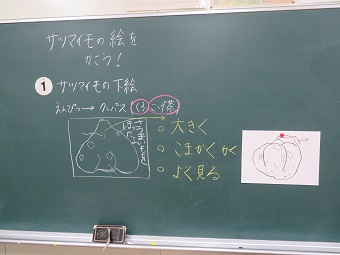 サツマイモの絵を
かこう!
1 サツマイモの下絵
えんぴつ→クレパス くろ こげ茶
大きく
こまかくかく
よく見る